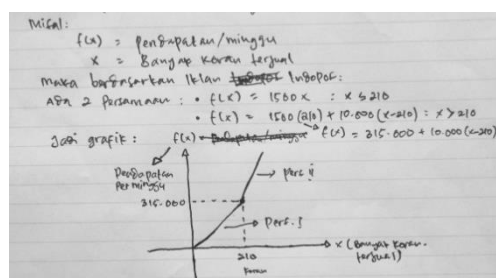 Misal :
f(x) = pendapatan/minggu
x = Banyak koran terjual
maka berdasarkan Iklan Indopos :
Ada 2 Persamaan : • f(x) = 1500x : x ≤ 210
• f(x) = 1500(210) + 10.000(x-210) : x > 210
Jadi grafik : f(x) f(x) = 315.000 + 10.000(x-210)
Pendapatan
Per minggu
pers. ii
315.000
pers. i
210
koran
x (Banyak koran
terjual)